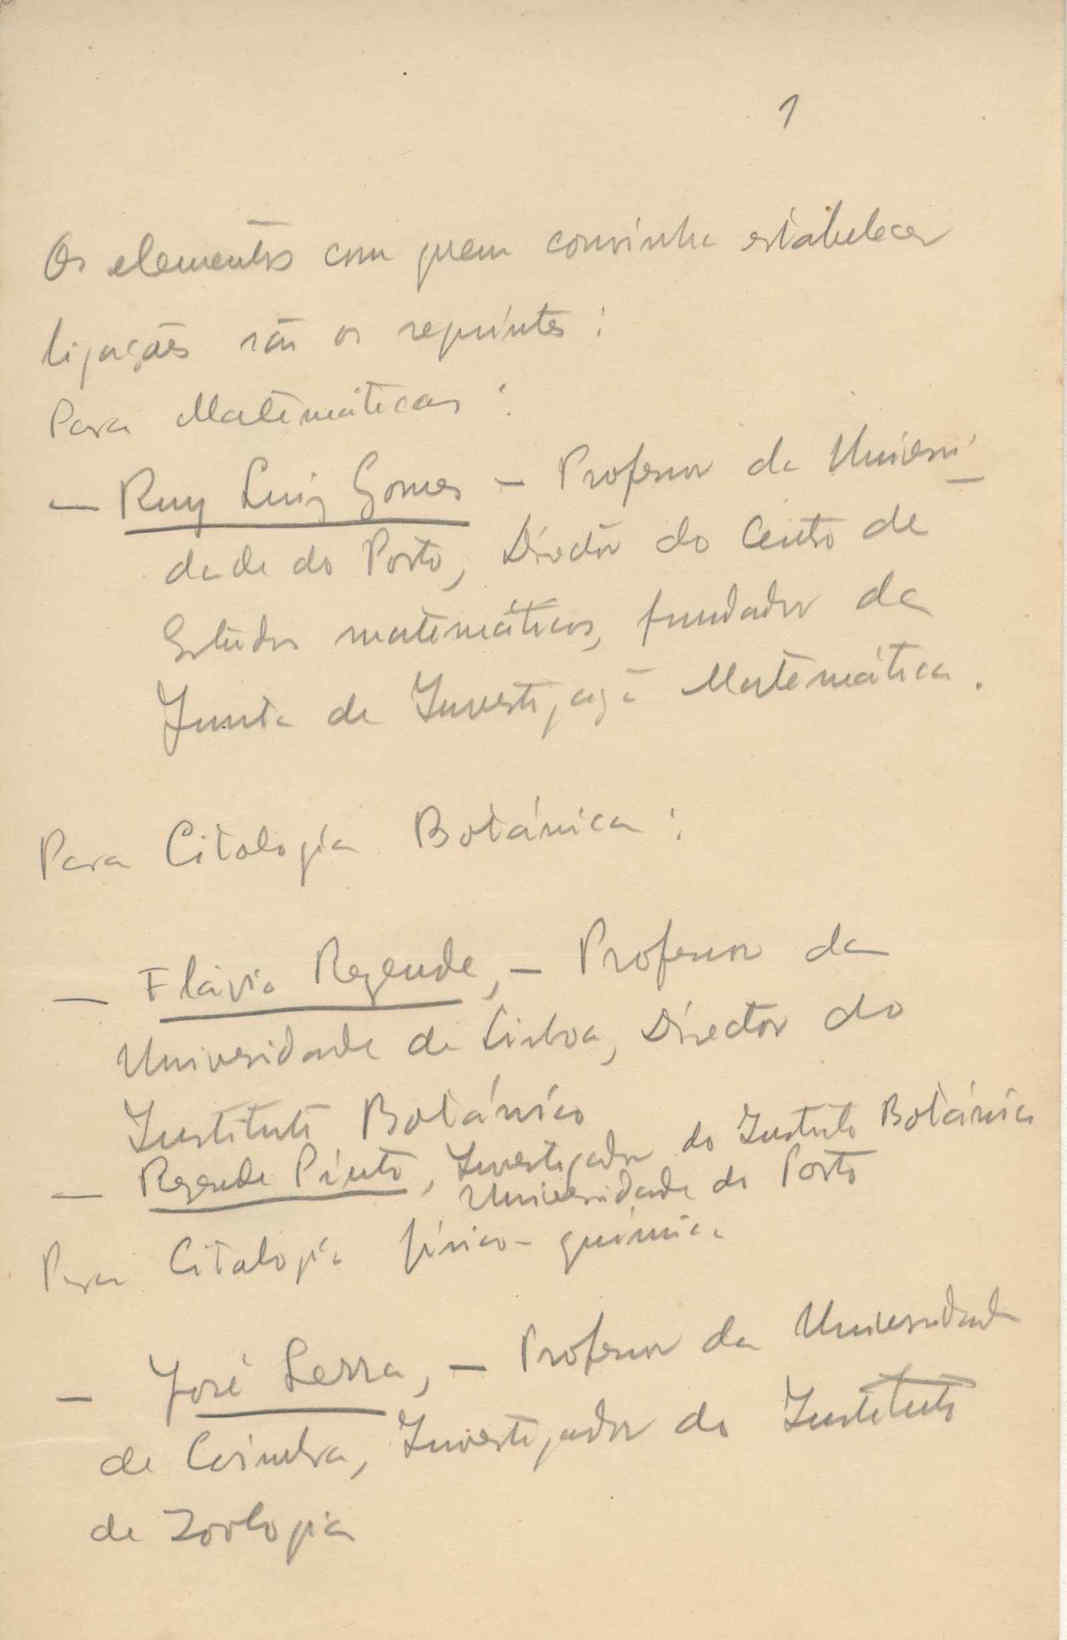 1
Os elementos com quem convinha estabelecer
ligações são os seguintes :
Para Matemáticas :
— Ruy Luiz Gomes — Professor da Universi-
dade do Porto, Director do Centro de
Estudos matemáticos, fundador da
Junta de Investigação Matemática .
Para Citologia Botánica :
— Flávio Rezende, — Professor da
Universidade de Lisboa, Director do
Instituto Botánico
— Rezende Pinto, Investigador do Instituto Botánico
Universidade do Porto
Para Citalogia físico-química
— José Serra, — Professor da Universidade
de Coimbra, Investigador do Instituto
de Zoologia